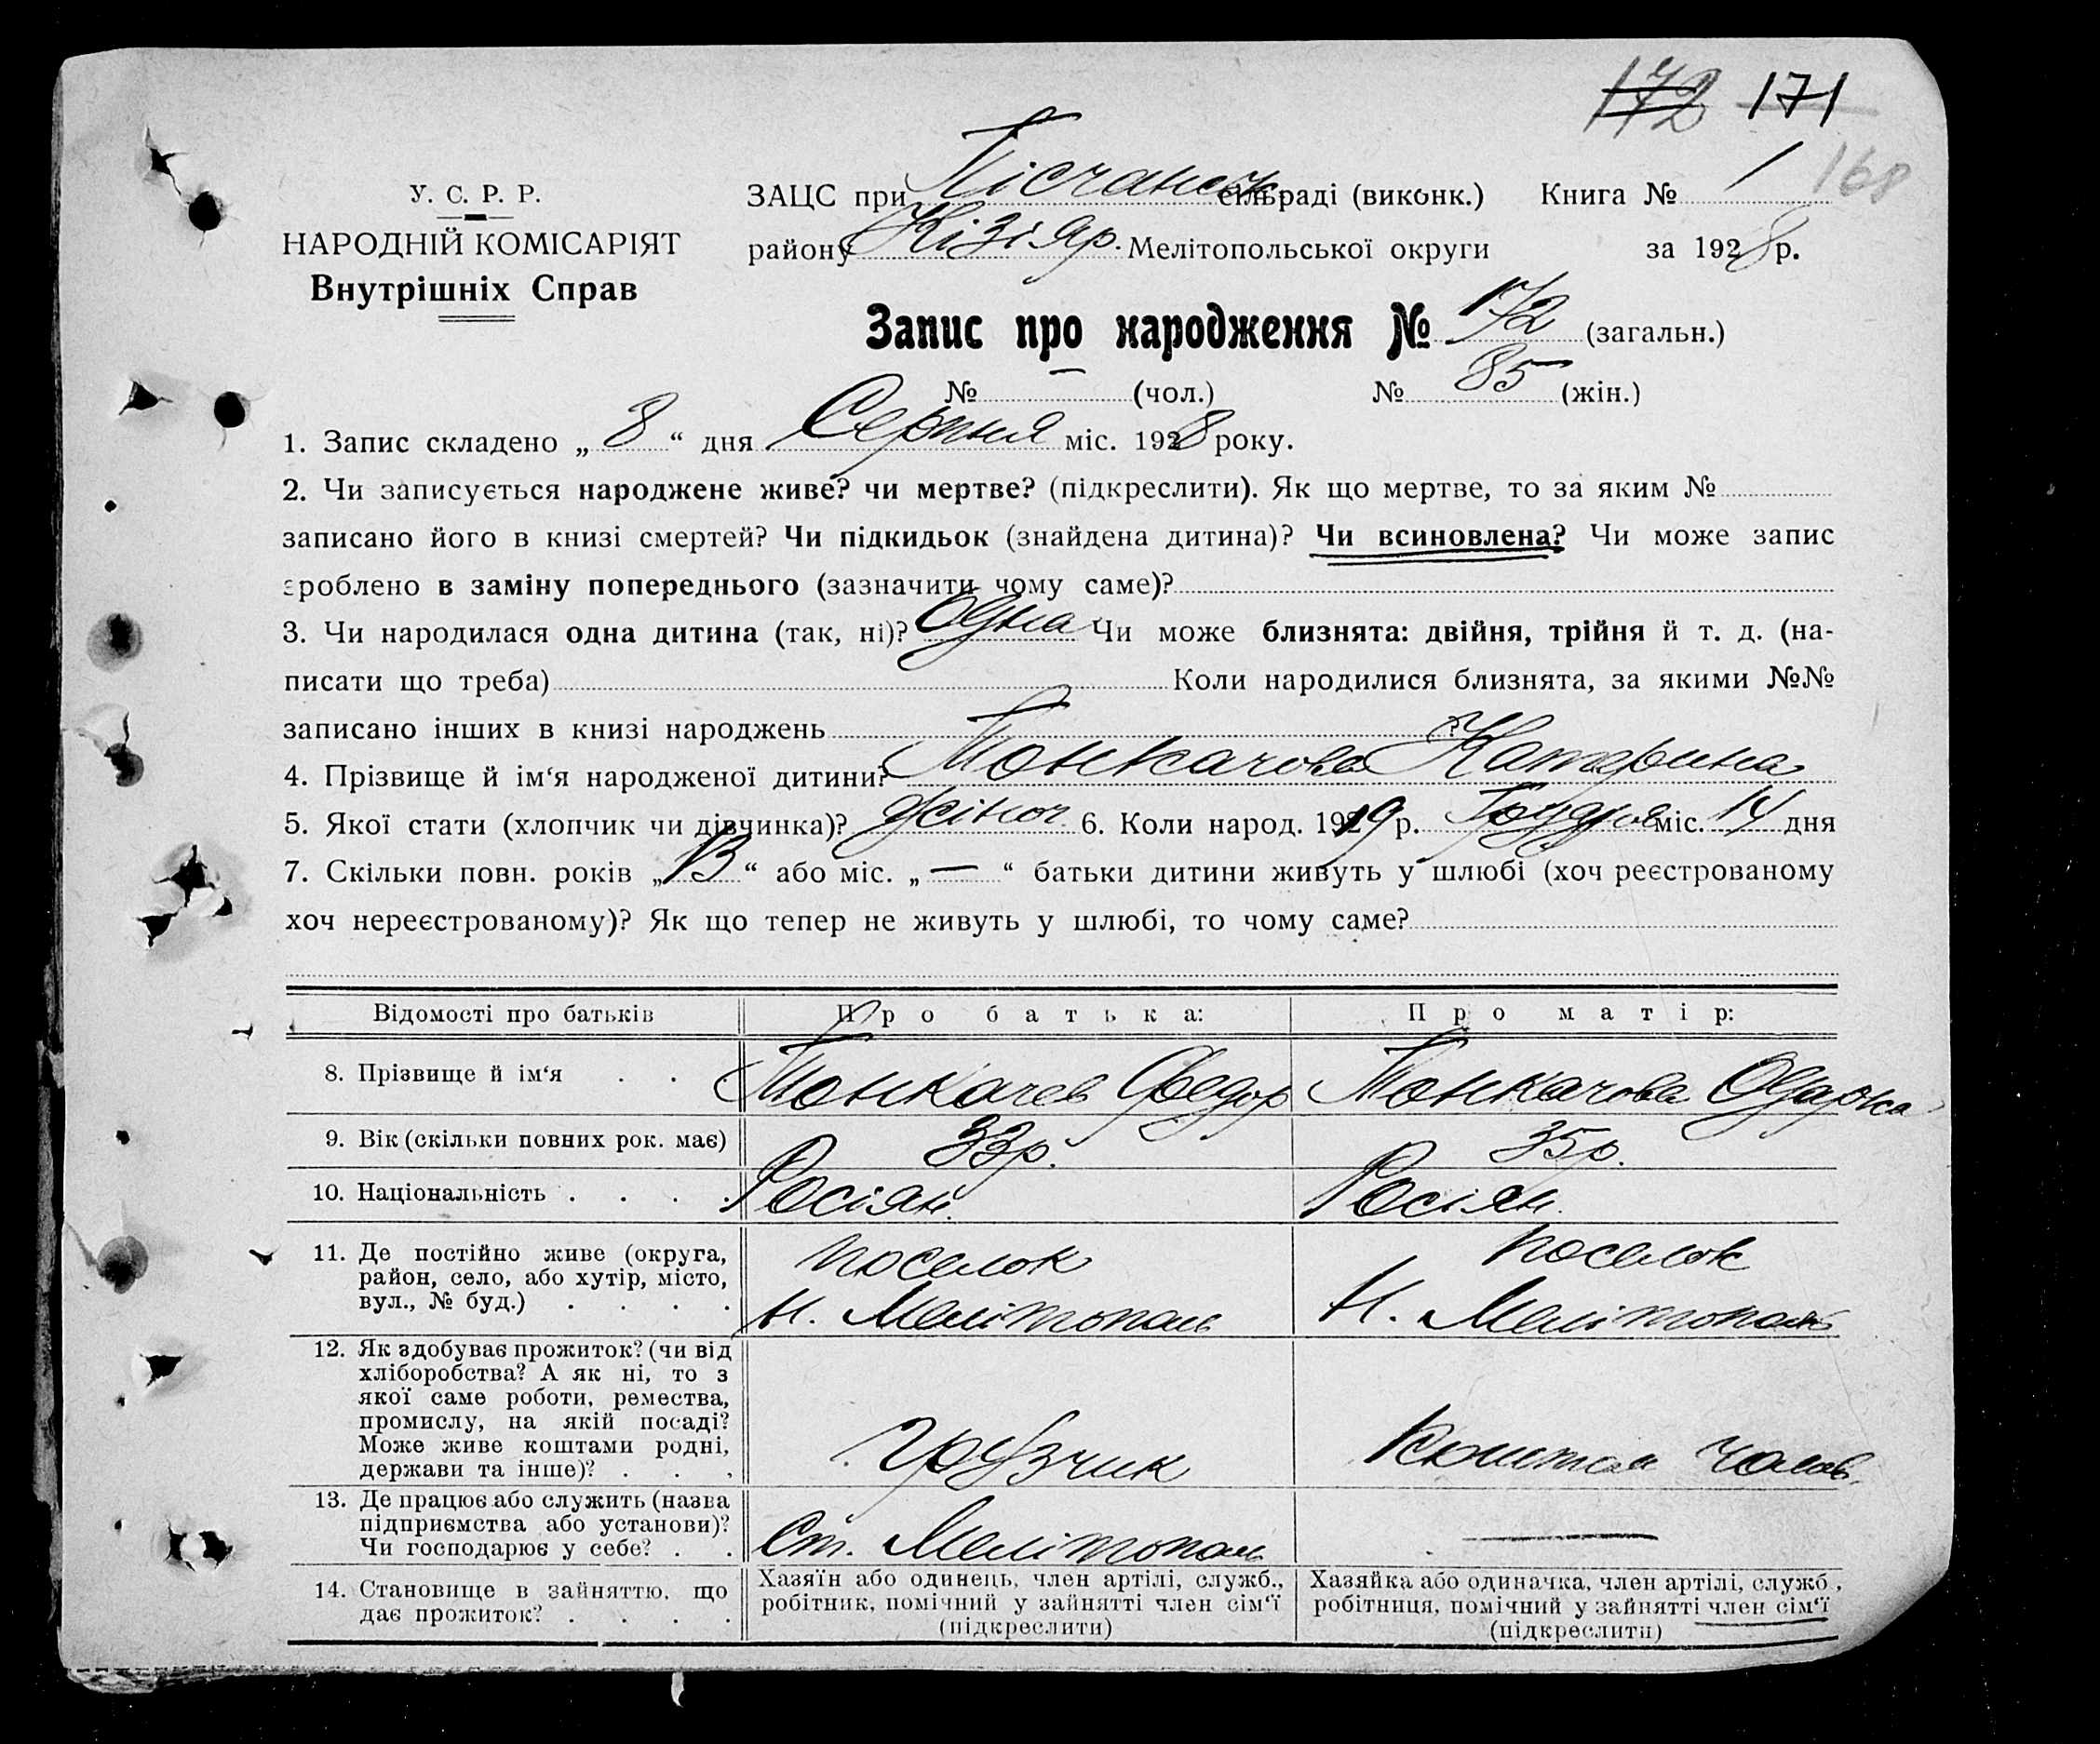 172 171
168
У. С. Р. Р.
НАРОДНІЙ КОМІСАРІЯТ
Внутрішніх Справ
ЗАЦС при Пісчанск. сільраді (виконк.) Книга № 1
району Кізіяр. Мелітопольської округи за 1928 р.
Запис про народження № 172 (загальн.)
№ — (чол.) № 85 (жін.)
1. Запис складено „ 8 “ дня Серпня міс. 1928 року.
2. Чи записується народжене живе? чи мертве? (підкреслити). Як що мертве, то за яким №
записано його в книзі смертей? Чи підкидьок (знайдена дитина)? Чи всиновлена? Чи може запис
зроблено в заміну попереднього (зазначити чому саме)?
3. Чи народилася одна дитина (так, ні)? Одна Чи може близнята: двійня, трійня й т. д. (на-
писати що треба) Коли народилися близнята, за якими №№
записано інших в книзі народжень ?
4. Прізвище й ім‘я народженої дитини? Тонкачова Катерина
5. Якої стати (хлопчик чи дівчинка)? жіноч. 6. Коли народ. 1919 р. Грудня міс. 14 дня
7. Скільки повн. років „ 13 “ або міс. „ — “ батьки дитини живуть у шлюбі (хоч реєстрованому
хоч нереєстрованому)? Як що тепер не живуть у шлюбі, то чому саме?
Відомості про батьків Про батька: Про матір:
8. Прізвище й ім‘я . . . Тонкачев Федор Тонкачова Одарка
9. Вік (скільки повних рок. має) 33 р. 35 р.
10. Національність . . . . Росіян. Росіян.
11. Де постійно живе (округа,
район, село, або хутір, місто,
вул., № буд.) . . . .
поселок
Н. Мелітополь
поселок
Н. Мелітополь
12. Як здобуває прожиток? (чи від
хліборобства? А як ні, то з
якої саме роботи, ремества,
промислу, на якій посаді?
Може живе коштами родні,
держави та інше)? . . .
Грузчик
Коштом Чолов.
13. Де працює або служить (назва
підприємства або установи)?
Чи господарює у себе? . .
Ст. Мелітополь
—
14. Становище в зайняттю, що
дає прожиток? . . . .
Хазяїн або одинець, член артілі, служб.,
робітник, помічний у зайнятті член сім‘ї
(підкреслити)
Хазяйка або одиначка, член артілі, служб.,
робітниця, помічний у зайнятті член сім‘ї
(підкреслити)